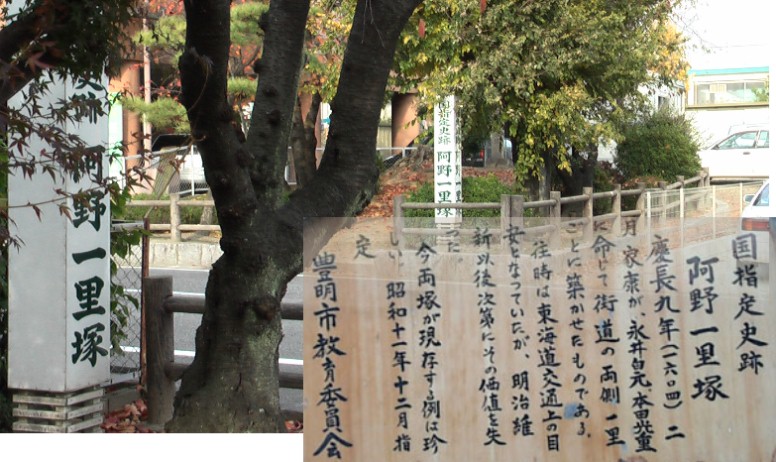 阿野一里塚
国指定史跡 阿野一里塚
国指定史跡
阿野一里塚
慶長九年(一六〇四)二
月家康が、永井白元、本田光重
に命じて街道の両側一里
ごとに築かせたものである。
往時は東海道交通上の目
安となつていたが、明治維
新以後次第にその価値を失
つた。
今両塚が現存する例は珍
しい。昭和十一年十二月指
定
豊明市教育委員会